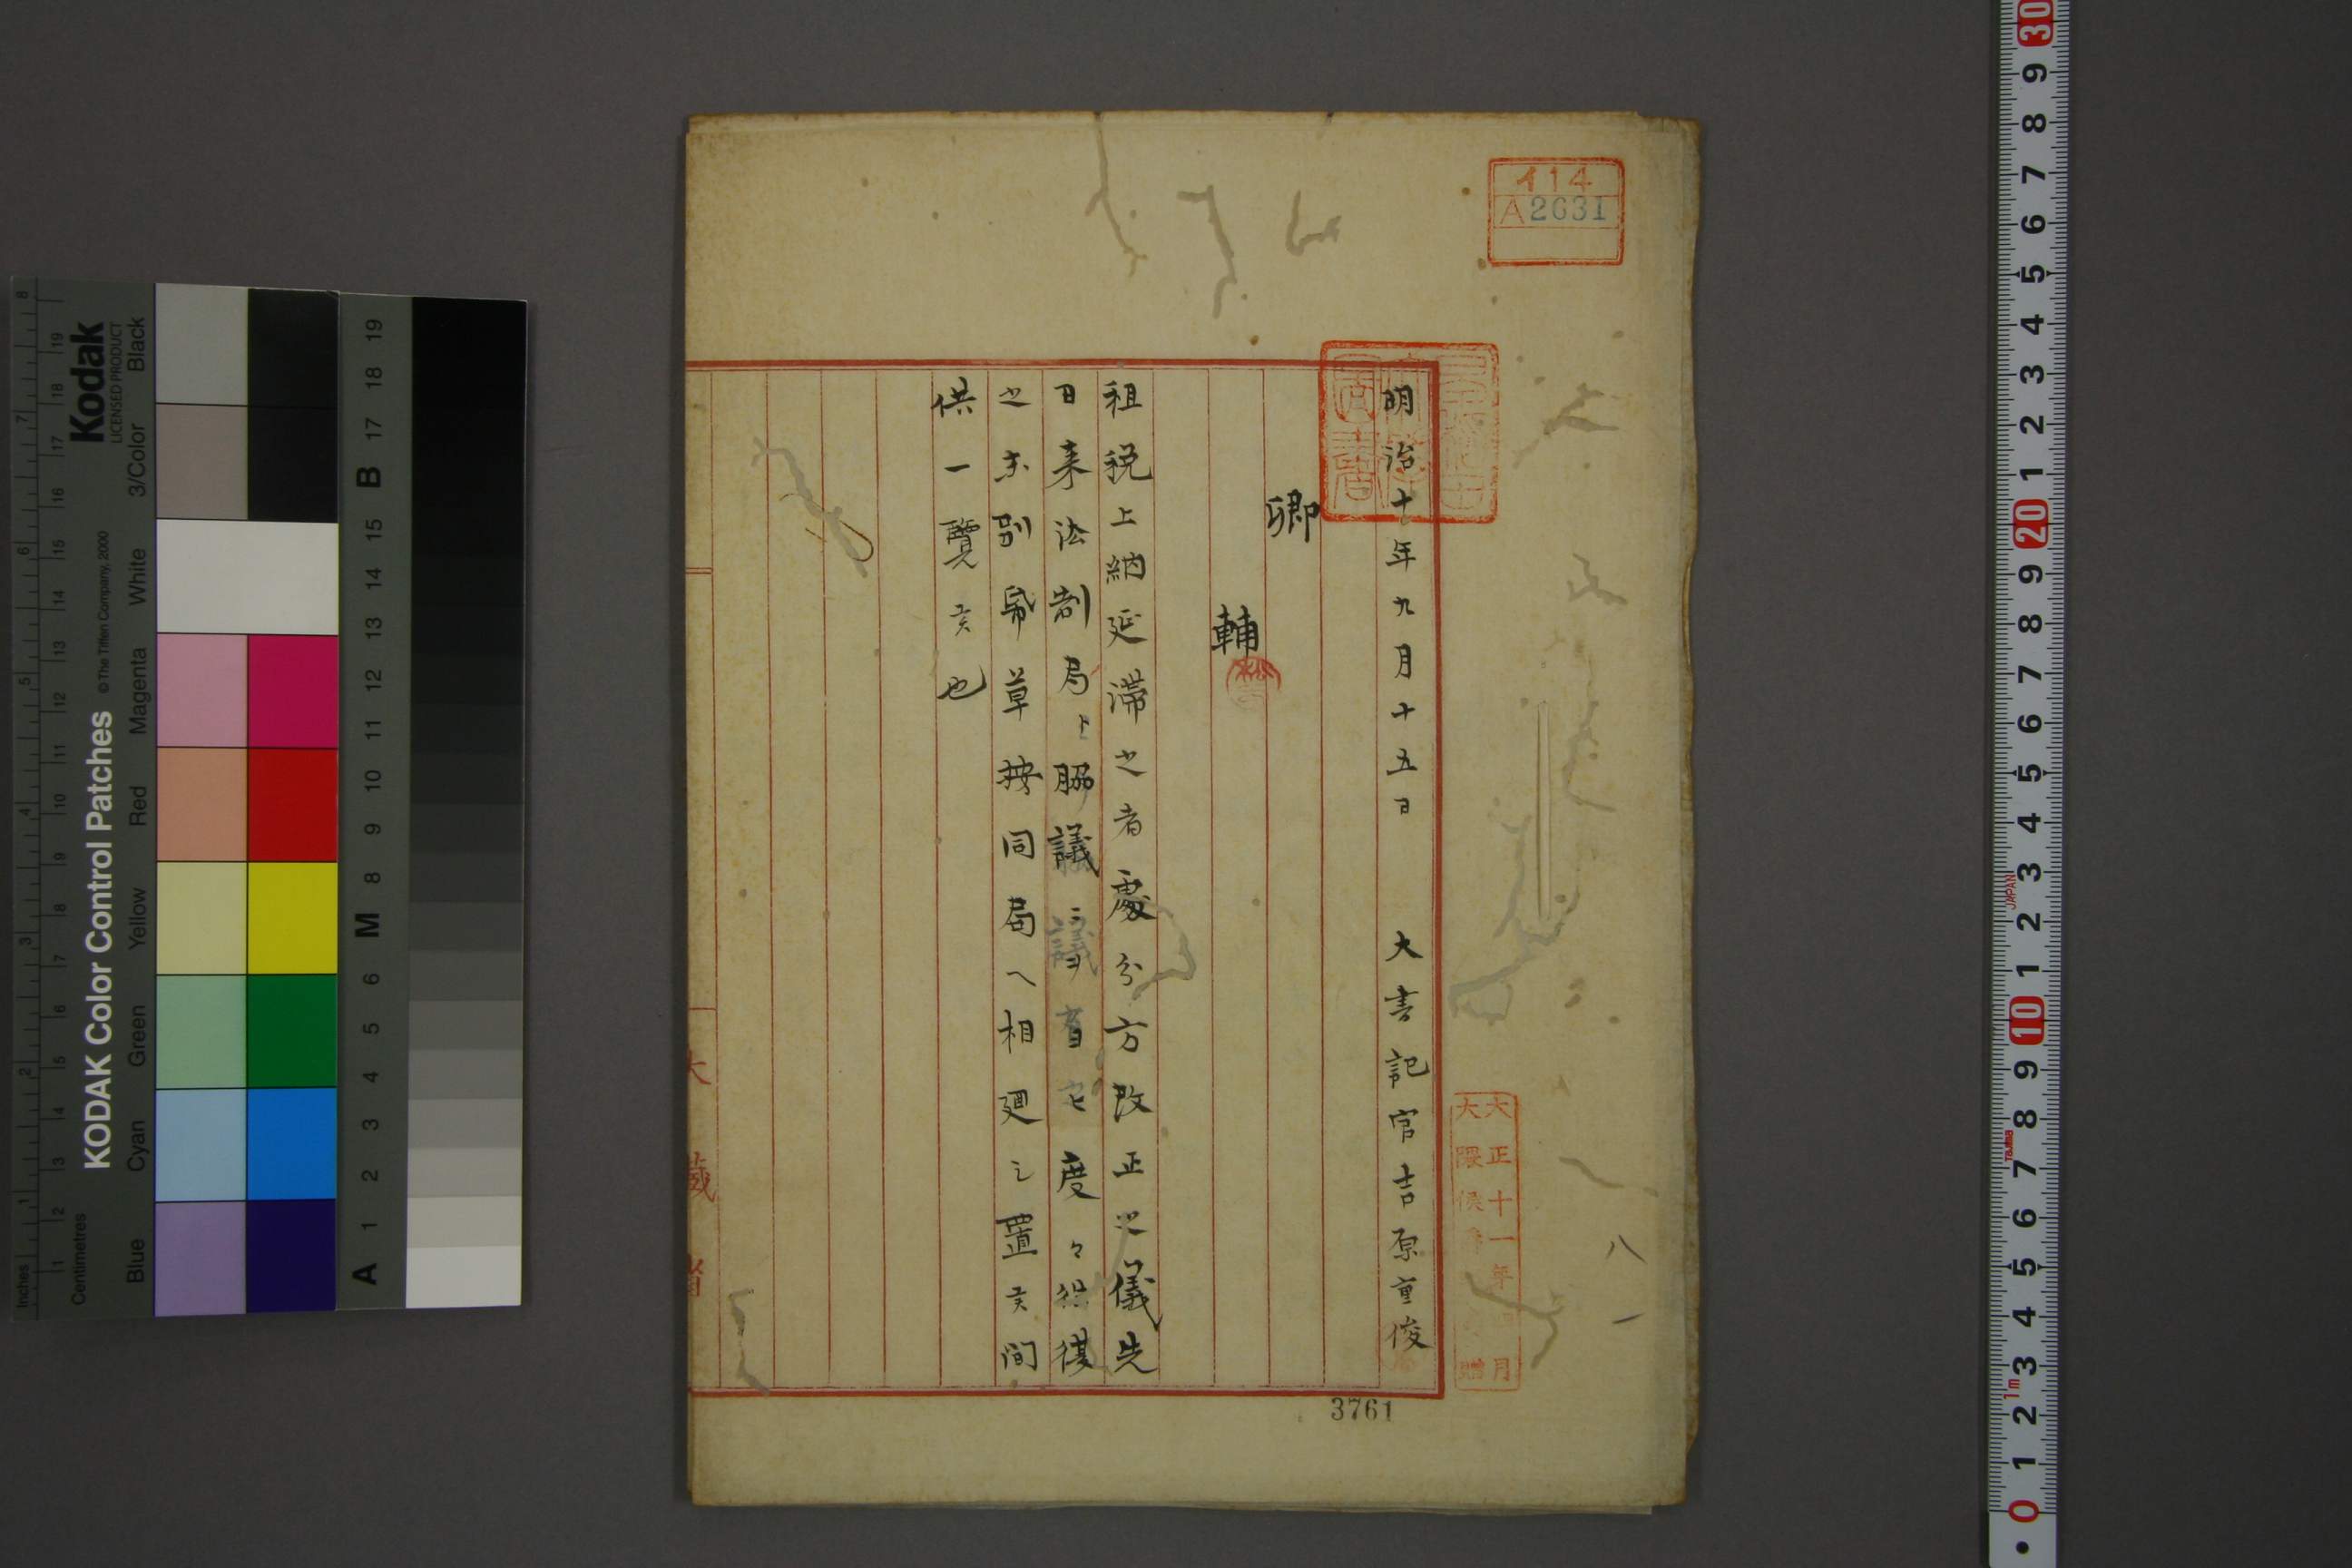 イ14
A2631
明治十年九月十五日 大書記官吉原重俊
卿
輔
租税上納延滞之者處分方改正之儀先
日来法制局ト脇議
度々
之末別帋草按同局ヘ相廻シ置候間
供一覽候也
大藏省
大正十一年 月
大隈侯 贈
3761
八一
KODAK Color Control Patches
©The Tiffen Company, 2000
Kodak
LICENSED PRODUCT
Inches
Centimetres
Blue Cyan Green Yellow Red Magenta White 3/Color Black
A 1 2 3 4 5 6 M 8 9 10 11 12 13 14 15 B 17 18 19
JAPAN
Tajima
1m